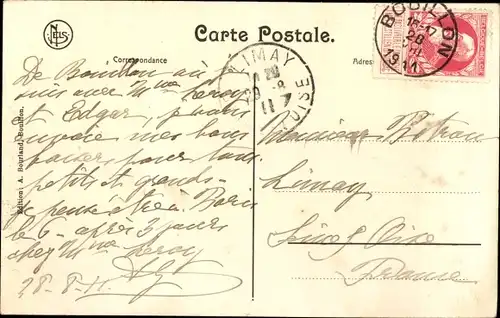 NELS
Carte Postale.
Correspondance
Adres
BOUILLON
1911
LIMAY
OISE
De Bouillon où je
suis avec Mme Leroy
et Edgar, je vous
envoie mes bons
pour tous
petits et grands.
Je pense être à Paris
le 6 - après 3 jours
chez Mme Leroy
28-8-11
Monsieur
Limay
Seine & Oise
France
Edition: A. Bourland, Bouillon.